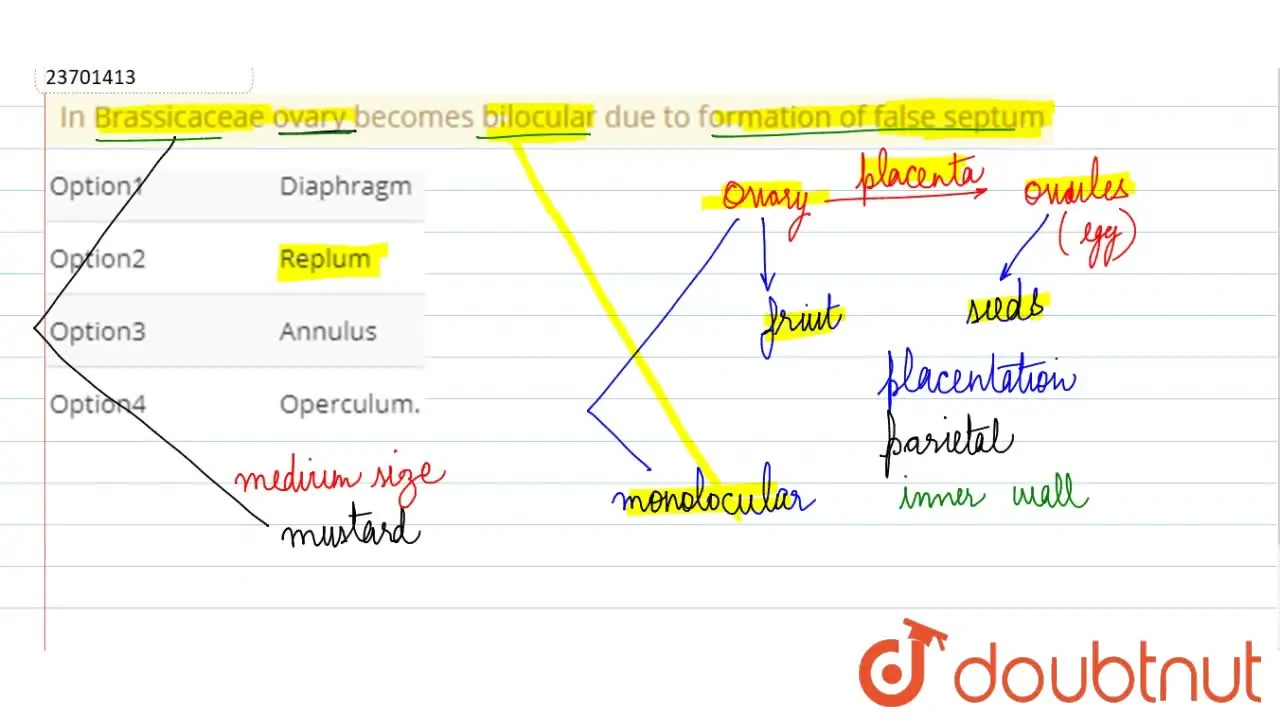 23701413
In Brassicaceae ovary becomes bilocular due to formation of false septum
Option1 Diaphragm
Option2 Replum
Option3 Annulus
Option4 Operculum.
ovary placenta ovules
(egg)
fruit seeds
placentation
parietal
medium size monolocular inner wall
mustard
doubtnut